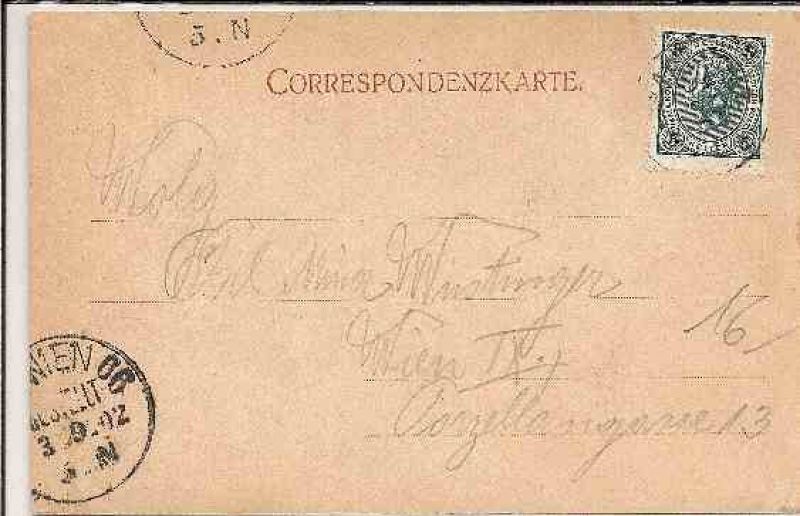 5.N
CORRESPONDENZKARTE.
Frl. Mina
Wien IX.
16
Porzellangasse 13
WIEN 66
BESTELLT
3 9.02
5.N